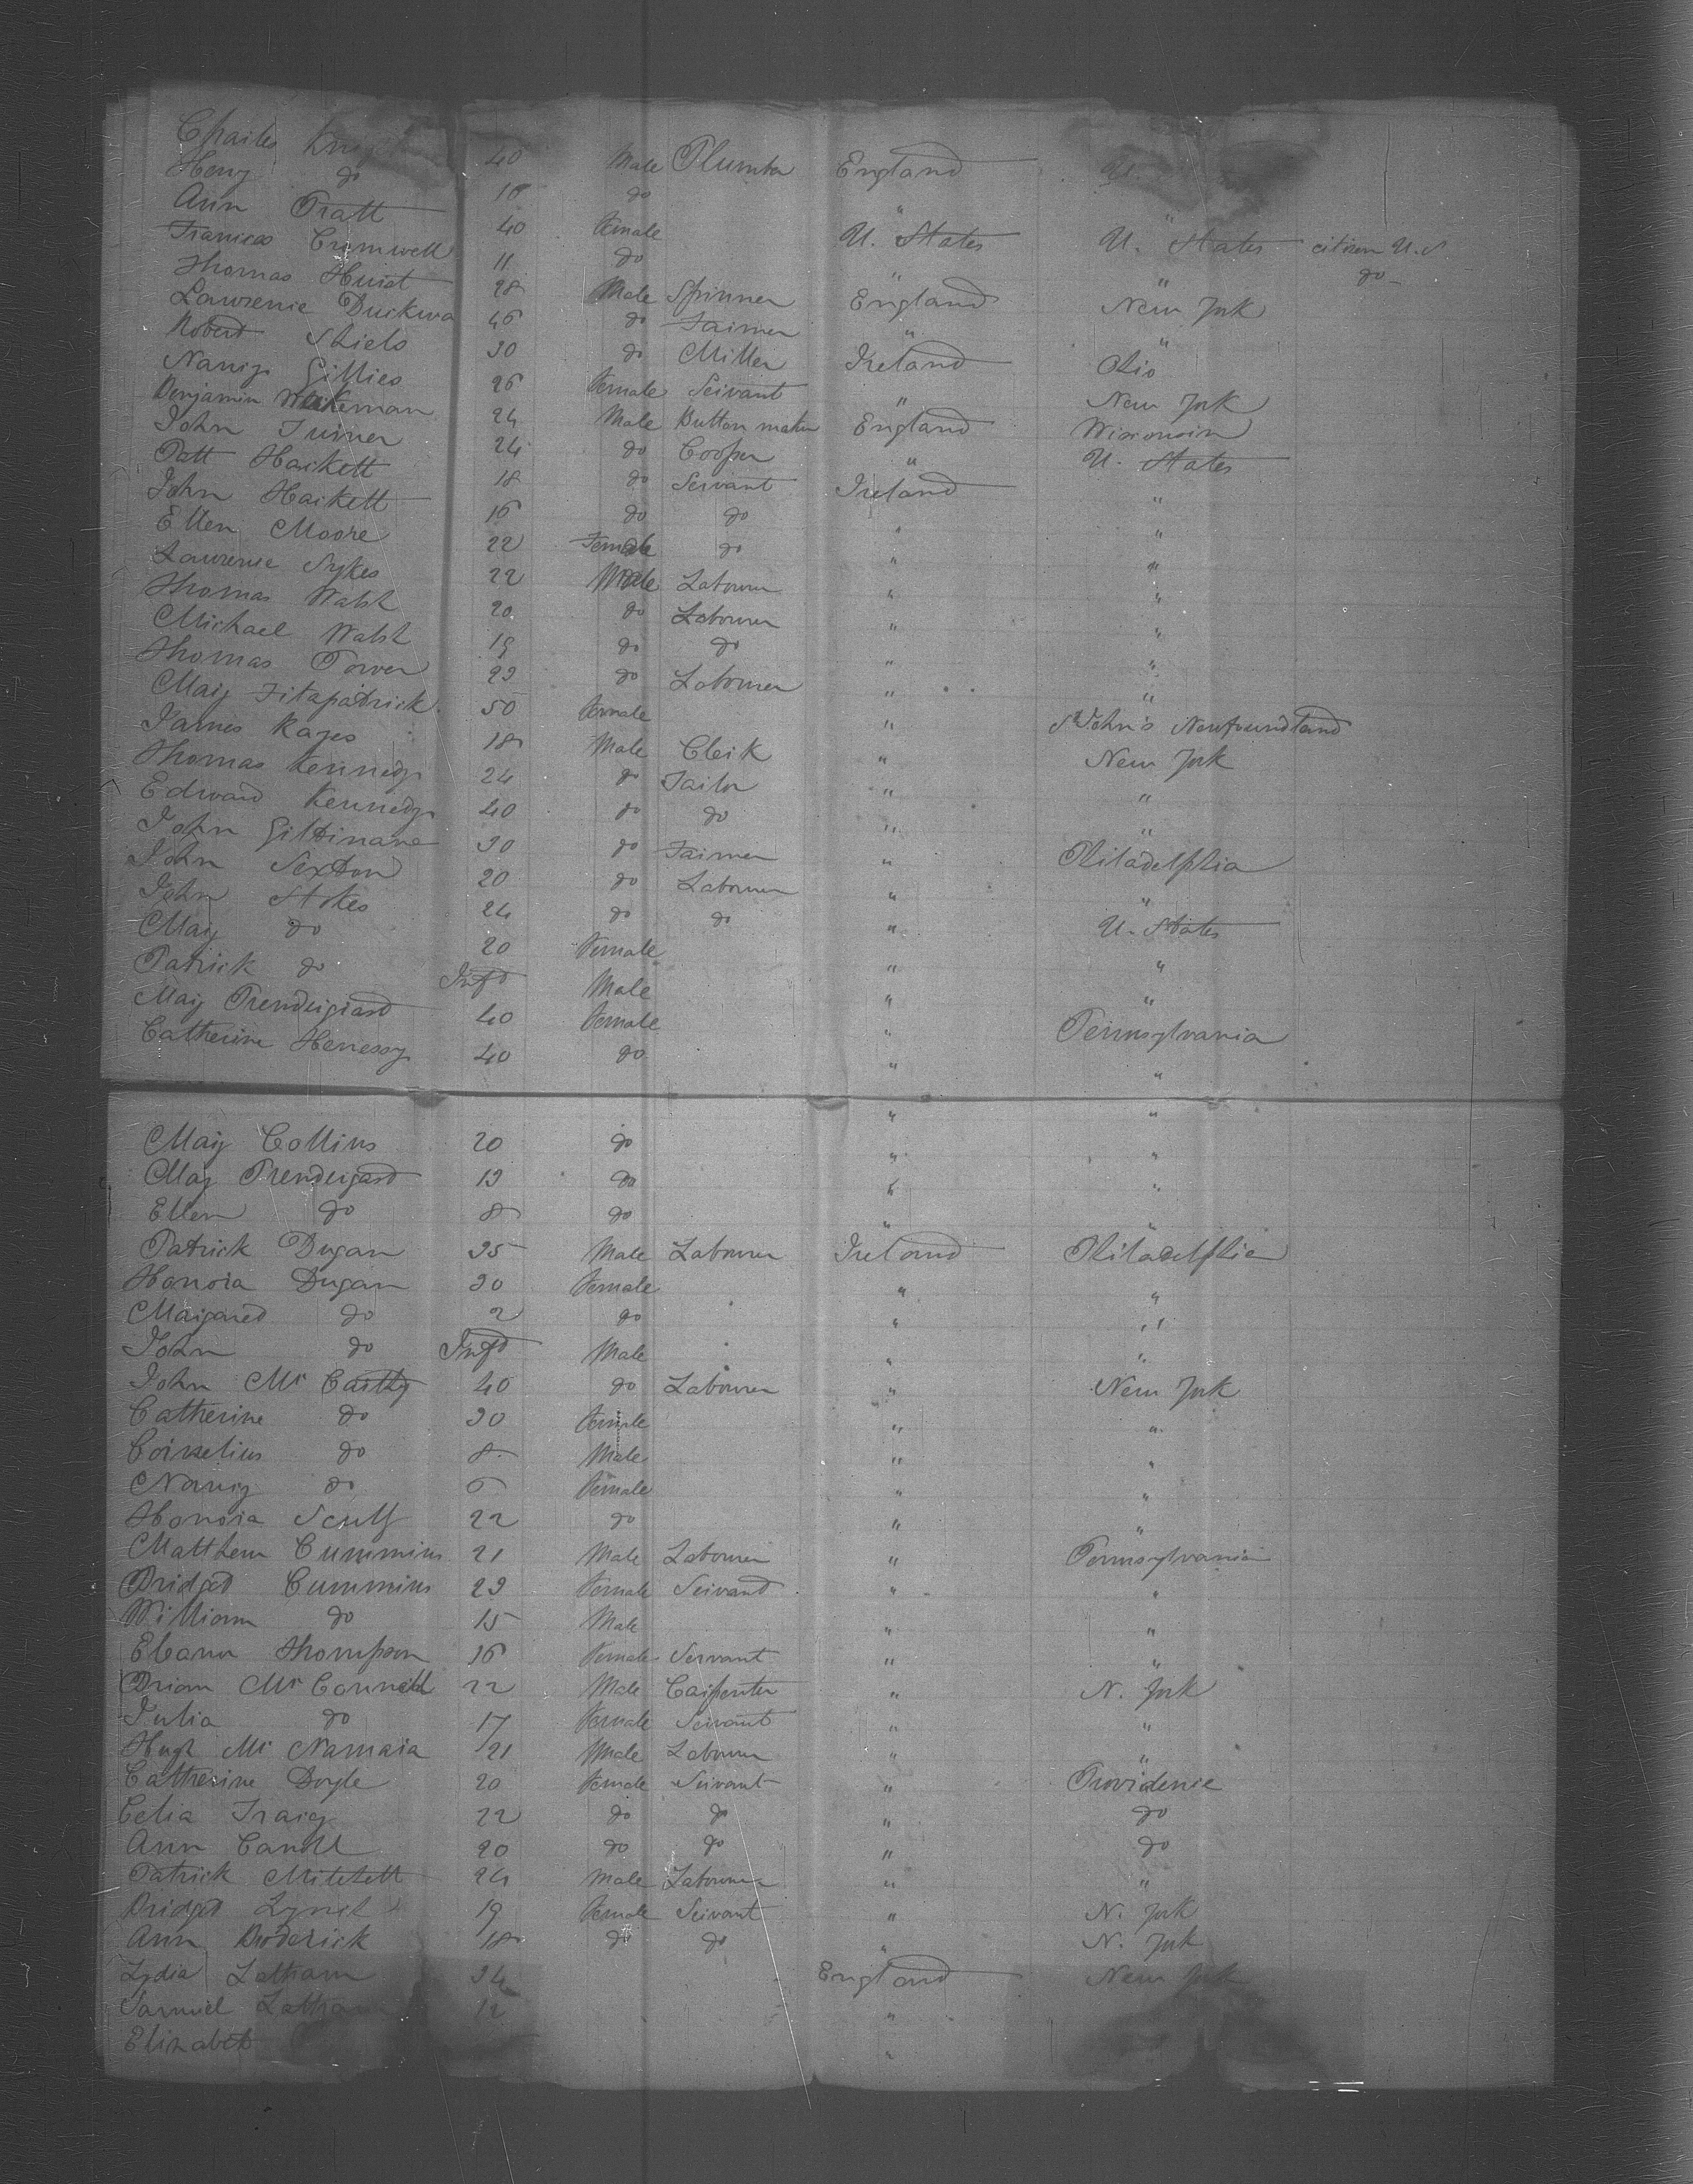 Charles Knight 40 Male Plumber England U.
Henry do 16 do " "
Ann Pratt 40 Female U. States U. States citizen U.S
Frances Cromwell 11 do " " do
Thomas Hurst 28 Male Spinner England New York
Lawrence Duckwa 46 do Farmer " "
Robert Shiels 30 do Miller Ireland Ohio
Nancy Gillies 26 Female Servant " New York
Benjamin Wakeman 24 Male Button maker England Wisconsin
John Turner 24 do Cooper " U. States
Patt Hackett 18 do Servant Ireland "
John Hackett 16 do do " "
Ellen Moore 22 Female do " "
Lawrence Sykes 22 Male Labourer " "
Thomas Walsh 20 do Labourer " "
Michael Walsh 19 do do " "
Thomas Power 23 do Labourer " "
Mary Fitzpatrick 50 Female " St John's Newfoundland
James Kayes 18 Male Clerk " New York
Thomas Kennedy 24 do Tailor " "
Edward Kennedy 40 do do " "
John Giltinane 30 do Farmer " Philadelphia
John Sexton 20 do Labourer " "
John Stokes 24 do do " U. States
Mary do 20 Female " "
Patrick do Inft Male " "
Mary Prendergast 40 Female " Pennsylvania
Catherine Henessy 40 do " "
Mary Collins 20 do " "
Mary Prendergast 13 do " "
Ellen do 8 do " "
Patrick Dugan 35 Male Labourer Ireland Philadelphia
Honora Dugan 30 Female " "
Margaret do 2 do " "
John do Inft Male " "
John Mc Carthy 40 do Labourer " New York
Catherine do 30 Female " "
Cornelius do 8 Male " "
Nancy do 6 Female " "
Honora Scully 22 do " "
Matthew Cummins 21 Male Labourer " Pennsylvania
Bridget Cummins 23 Female Servant " "
William do 15 Male " "
Eleanor Thompson 16 Female Servant " "
Brian Mc Connell 22 Male Carpenter " N. York
Julia do 17 Female Servant " "
Hugh Mc Namara 21 Male Labourer " "
Catherine Doyle 20 Female Servant " Providence
Celia 22 do do " do
Ann Carroll 20 do do " do
Patrick Mitchell 24 Male Labourer " "
Bridget Lynch 19 Female Servant " N. York
Ann Broderick 18 do do " N. York
Lydia Latham 34 England New York
Samuel Latham 12 "
Elizabeth "